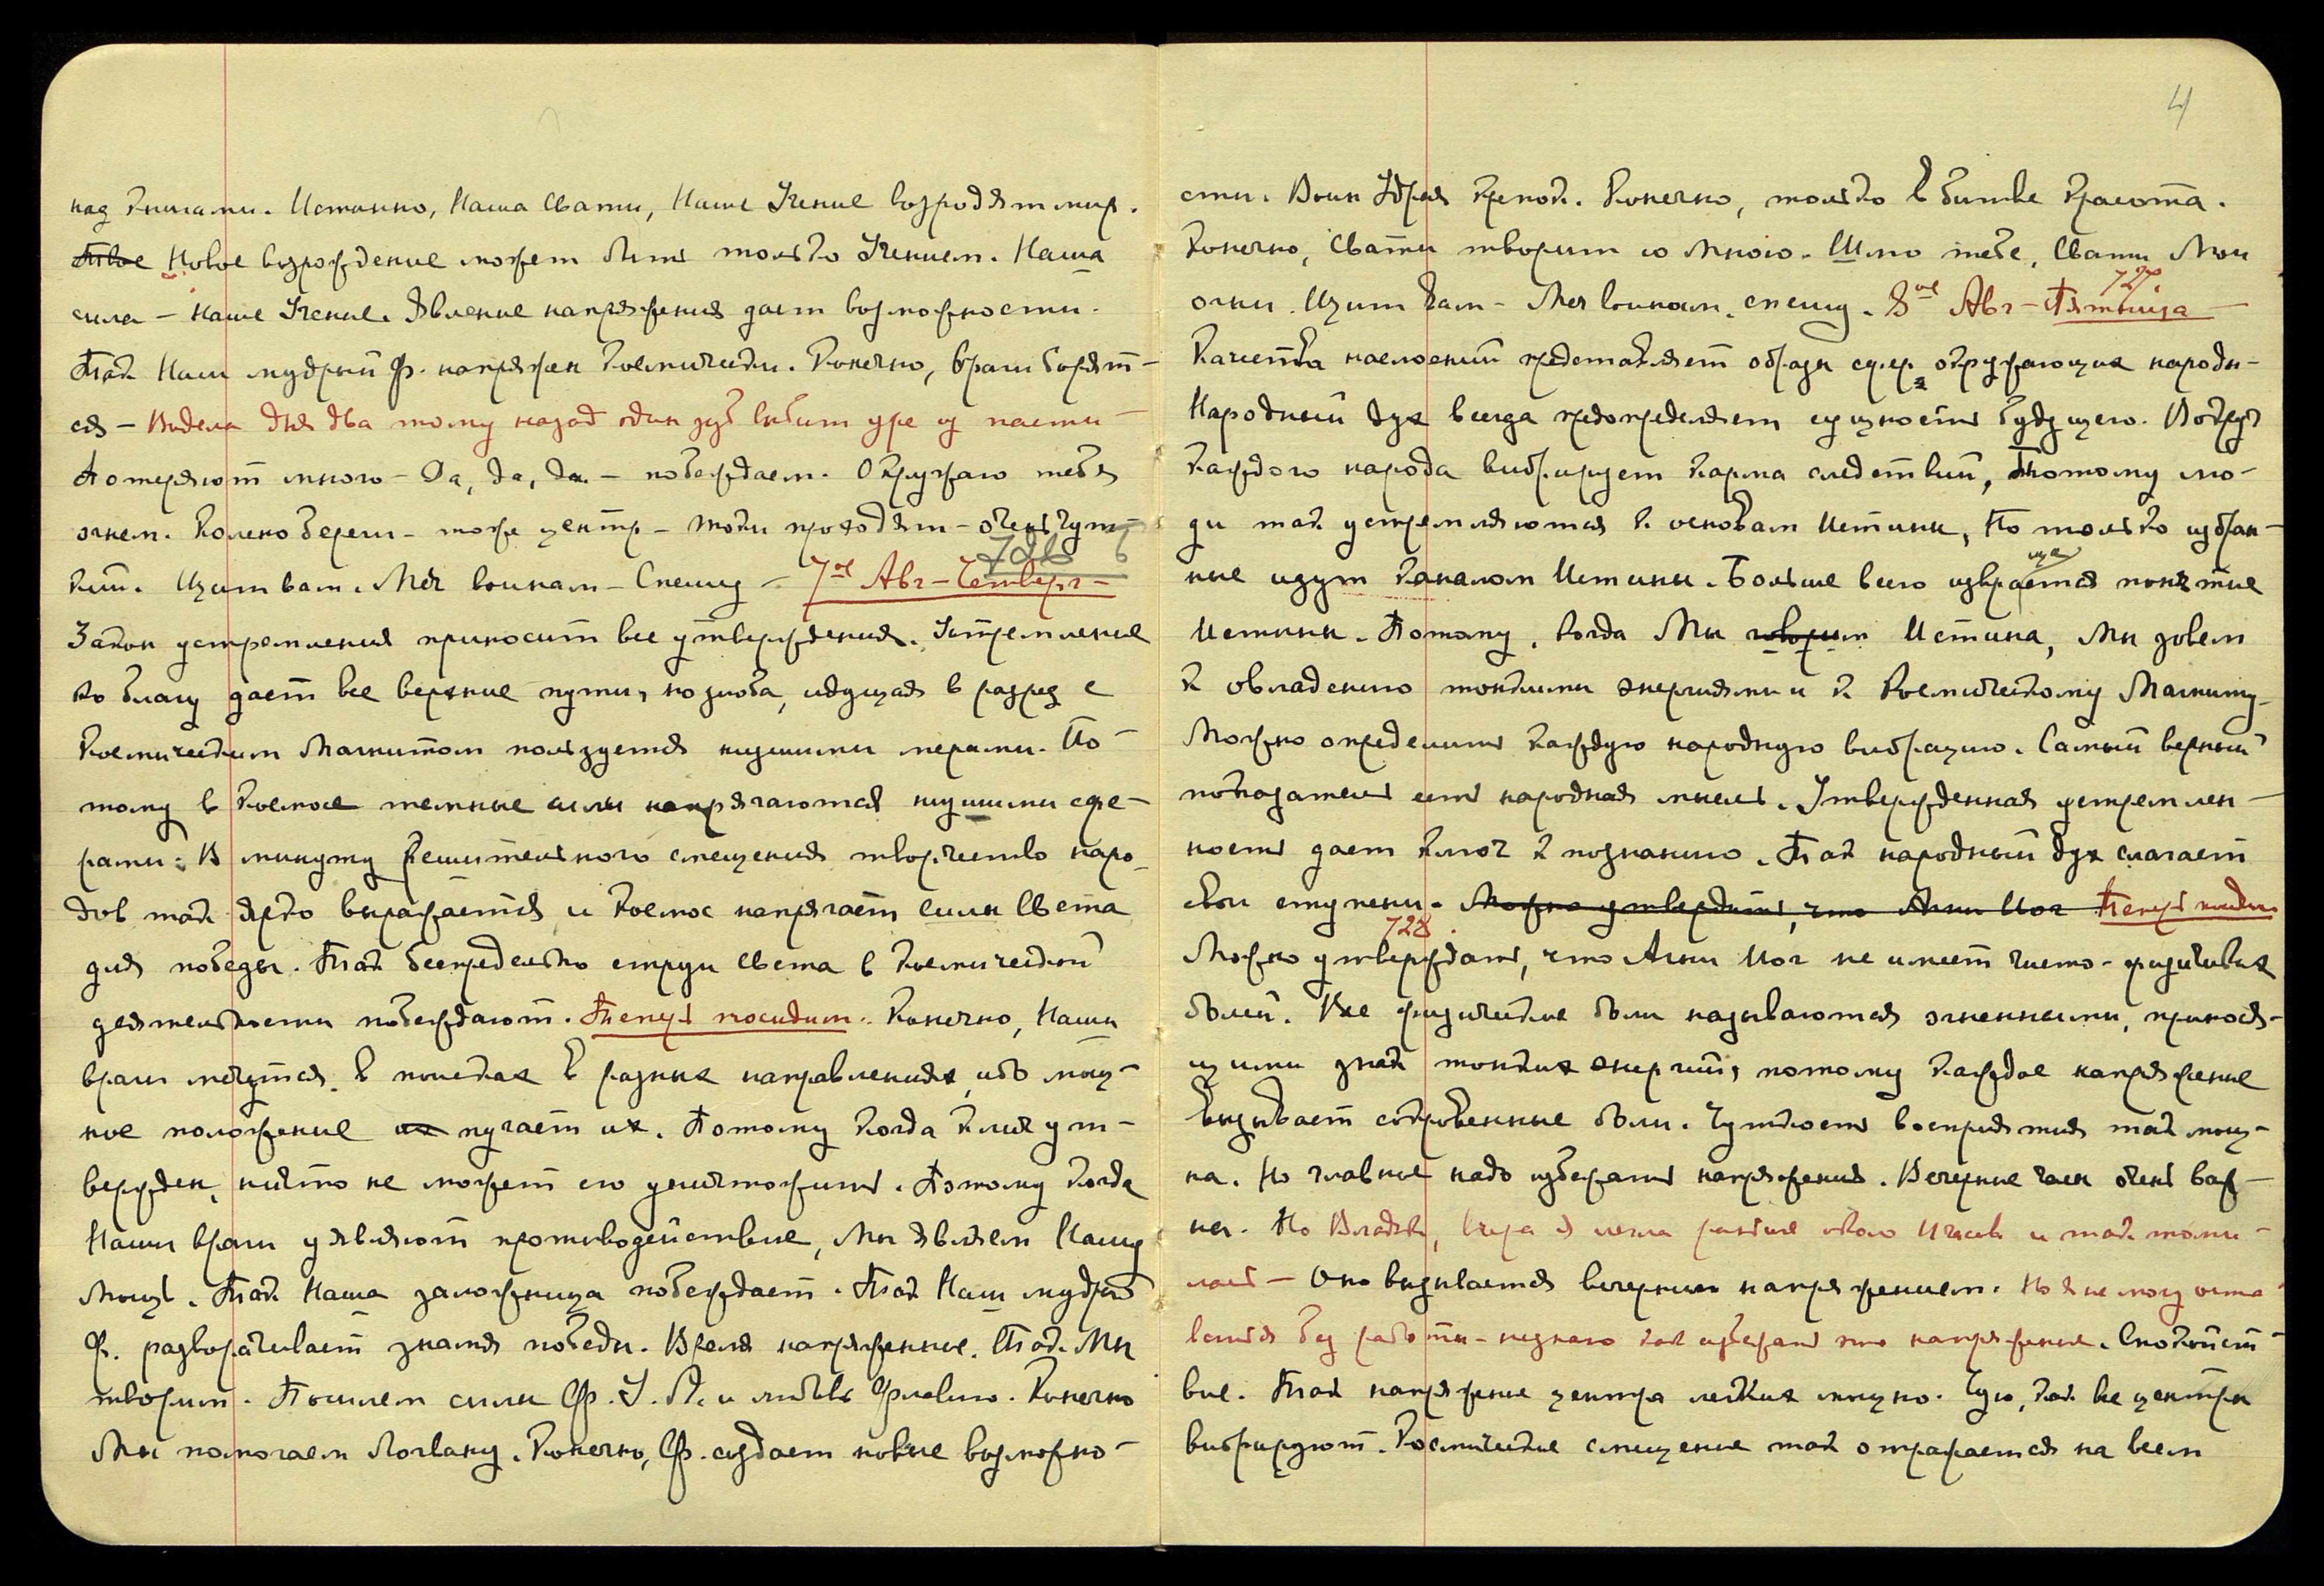 над книгами. Истинно, Наша Свати, Наше Учение возродят мир.
Твое Новое возрождение может быть только Учением. Наша
сила — Наше Учение. Явление напряжения дает возможности.
Так Наш мудрый Ф. напряжен космически. Конечно, враги борят-
ся — Видела дня два тому назад один зуб выбит уже из пасти —
Потеряют много — Да, да, да — побеждаем. Окружаю тебя
огнем. Колено береги — тоже центр — токи проходят — очень чут-
726
кий. Щит вам. Меч воинам — Спешу — 7ое Авг — Четверг —
Закон устремления приносит все утверждения. Устремление
ко благу дает все верхние пути, но злоба, идущая в разрез с
Космическим Магнитом пользуется низшими мерами. По-
тому в Космосе темные силы напрягаются низшими сфе-
рами. В минуту решительного смещения творчество наро-
дов так ярко выражается и Космос напрягает силы Света
для победы. Так беспредельно струи Света в космической
деятельности побеждают. Теперь посидим. Конечно, Наши
враги мечутся в поисках в разных направлениях, ибо мощ-
ное положение их пугает их. Потому когда Ключ ут-
вержден, ничто не может его уничтожить. Потому когда
Наши враги уявляют противодействие, Мы являем Нашу
Мощь. Так Наша заложница побеждает. Так Наш мудрый
Ф. разворачивает знамя победы. Время напряженное. Так Мы
творим. Пошлем силы Ф. У. П. и любовь Флавию. Конечно
Мы помогаем Логвану. Конечно, Ф. создает новые возможно-
4
сти. Воин Удрая крепок. Конечно, только в битве красота.
Конечно, Свати творит со Мною. Шлю тебе, Свати Мои
огни. Щит вам — Меч воинам, спешу. 8ое Авг — Пятница —
727
Качества наслоений представляет образы сфер, окружающих народы —
Народный дух всегда предопределяет сущность будущего. Вокруг
каждого народа вибрирует карма следствий, потому лю-
ди так устремляются к основам Истины, Но только избран-
ные идут каналом Истины. Больше всего извращается понятие
Истины. Потому, когда Мы говорим Истина, Мы зовем
к овладению тонкими энергиями и к Космическому Магниту —
Можно определить каждую народную вибрацию. Самый верный
показатель есть народная мысль. Утвержденная устремлен-
ность дает ключ к познанию. Так народный дух слагает
свои ступени. Можно утвердить, что Агни Йог Теперь посидим
728
Можно утверждать, что Агни Йог не имеет чисто-физических
болей. Все физические боли называются огненными, принося-
щими знак тонких энергий, потому каждое напряжение
вызывает сокровенные боли. Чуткость восприятия так мощ-
на. Но главное надо избегать напряжения. Вечерние часы очень важ-
ны. Но Владыка, вчера я легла раньше около 11 часов и так томи-
лась — Оно вызывается вечерним напряжением. Но я не могу оста-
ваться без работы — не знаю как избежать это напряжение. Спокойст-
вие. Так напряжение центра легких мощно. Чую, как все центры
вибрируют. Космическое смещение так отражается на всем